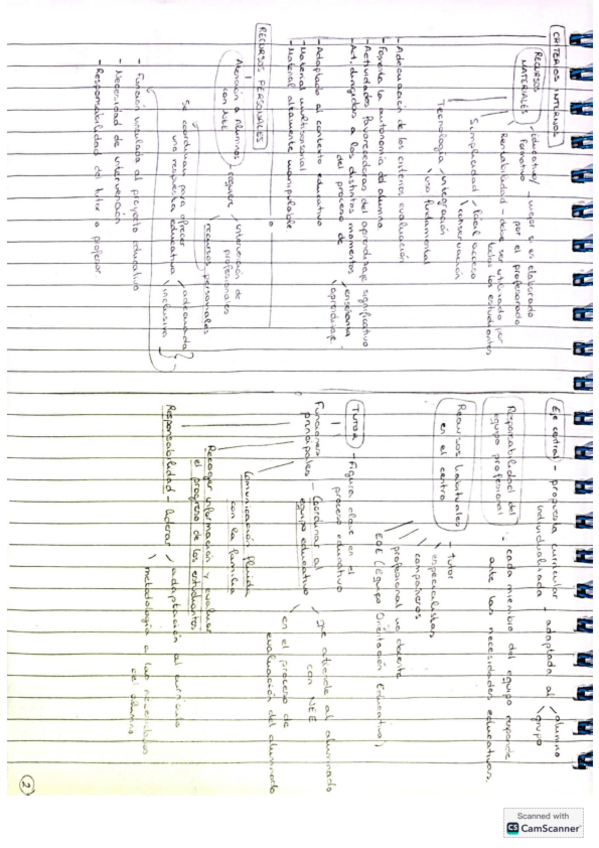 CRITERIOS INTERNOS
RECURSOS MATERIALES
educativo/formativo - mejor si es elaborado
por el profesorado
Rentabilidad - debe ser utilizado por
todos los estudiantes
Simplicidad / fácil acceso
\ conservación
Tecnología / integración
\ uso fundamental
- Adecuación de los criterios evaluación
- Fomenta la autonomía del alumno
- Actividades favorecedoras del aprendizaje significativo
- Act. dirigidas a los distintos momentos
del proceso de / enseñanza
\ aprendizaje
- Adaptado al contexto educativo
- Material multisensorial
- Material altamente manipulable
RECURSOS PERSONALES
Atención a Alumnos
con NEE
requiere / intervención de
profesionales
\ recursos personales
Se coordinan para ofrecer
una respuesta educativa / adecuada
\ inclusiva
- Función vinculada al proyecto educativo
- Necesidad de intervención
- Responsabilidad del tutor o profesor
Eje central - propuesta curricular
individualizada - adaptada al / alumno
\ grupo
Responsabilidad del
equipo profesional
- cada miembro del equipo responde
ante las necesidades educativas.
Recursos habituales
en el centro
- Tutor
\ especialistas
\ compañeros
profesional no docente
EOE (Equipo Orientación Educativa)
TUTOR - Figura clave en el
proceso educativo
Funciones
principales - Coordinar al
equipo educativo
/ Que atiende al alumnado
con NEE
\ en el proceso de
evaluación del alumnado
Comunicación fluida
con la familia
Recoger información y evaluar
el progreso de los estudiantes
Responsabilidad - liderar / adaptación al currículo
\ metodología a las necesidades
del alumno
2
Scanned with
CS CamScanner